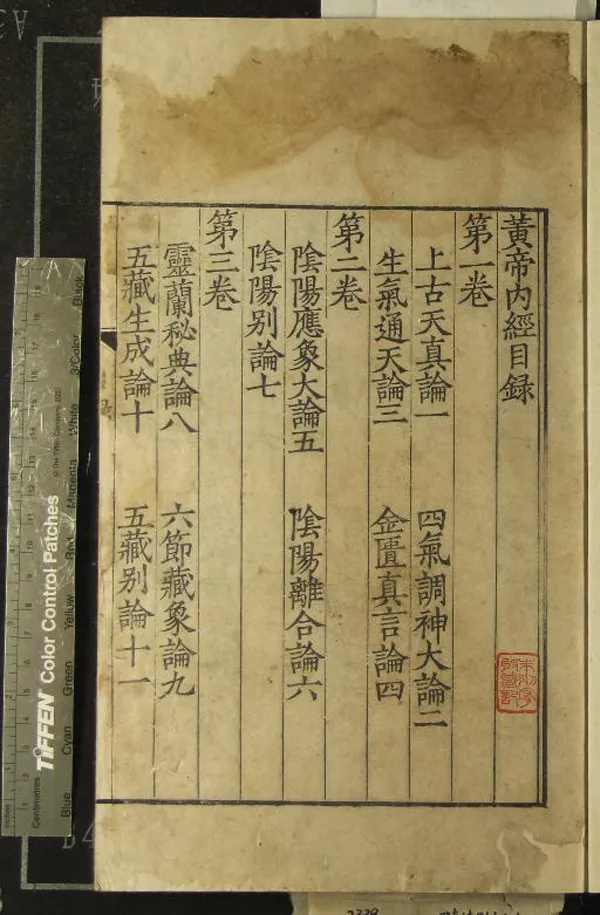 黃帝內經目録
第一卷
上古天真論一 四氣調神大論二
生氣通天論三 金匱真言論四
第二卷
陰陽應象大論五 陰陽離合論六
陰陽别論七
第三卷
靈蘭秘典論八 六節藏象論九
五藏生成論十 五藏别論十一
TIFFEN Color Control Patches
© The Tiffen Company, 2007
Blue Cyan Green Yellow Red Magenta White 3/Color Black
Inches
Centimetres